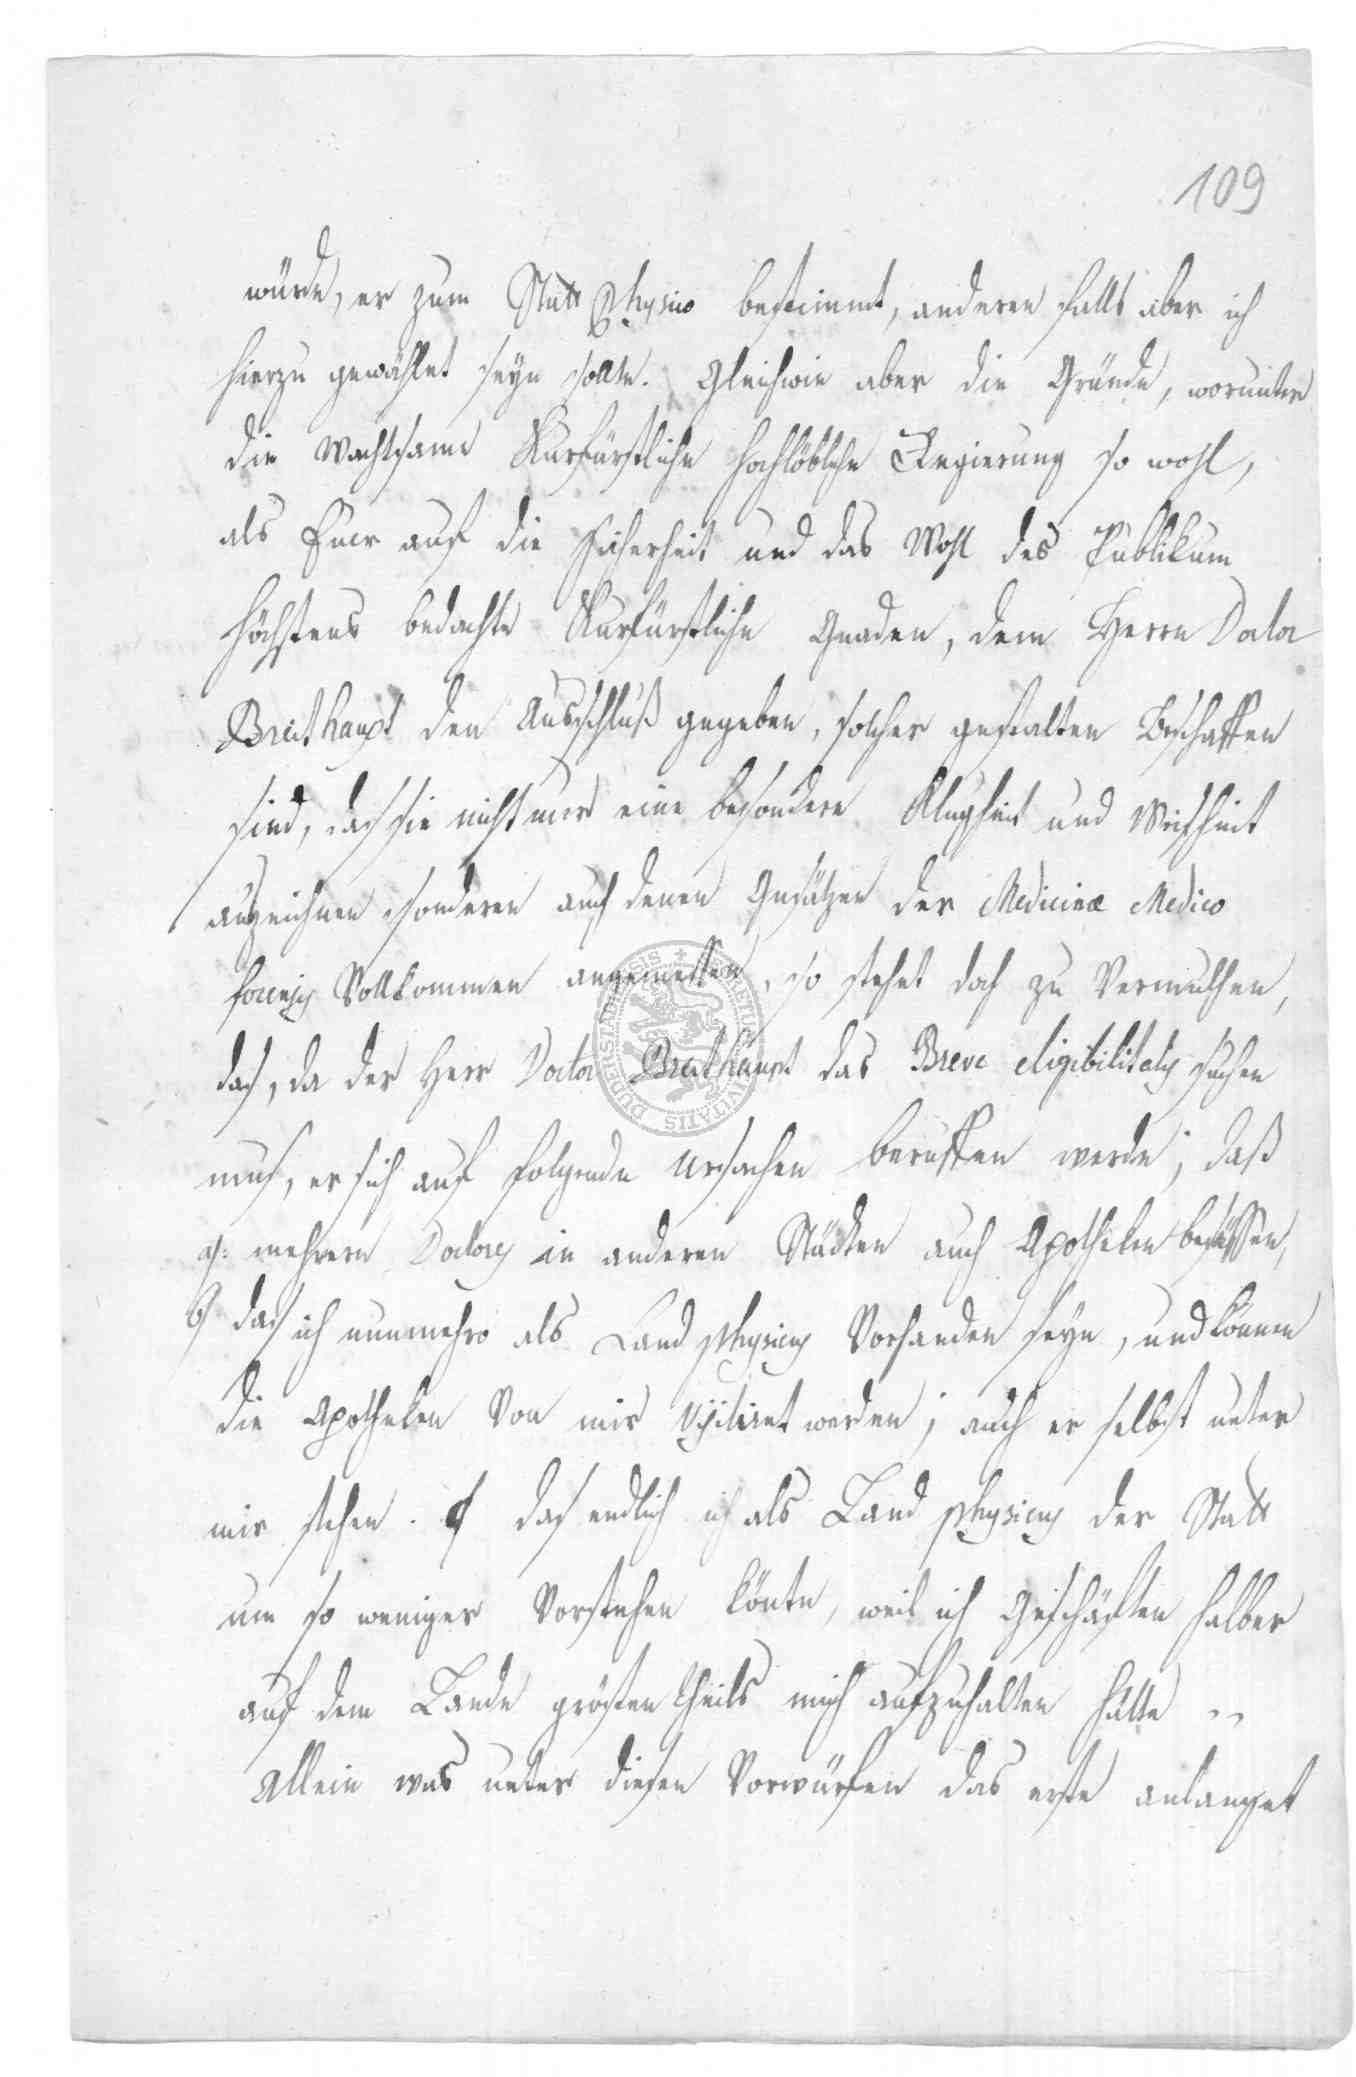 109
würde, er zum Statt Physico bestimmt, anderen falls aber ich
hierzu gewählet seyn sollte. Gleichwie aber die Gründe, worunter
die Wachtsame Kurfürstliche hochlöbliche Regierung so wohl,
als Euer auf die Sicherheit und das Wohl des Publikum
höchstens bedachte Kurfürstliche Gnaden, dem Herrn Doctor
Breithaupt den Ausschluß gegeben, solcher gestalten Beschaffen
sind, das sie nicht nur eine besondere Klugheit und Weisheit
anzeichnen sonderen auch denen Gesätzen der Medicinæ Medico
forensis Vollkommen angemessen, so stehet doch zu Vermuthen,
das, da der Herr Doctor Breithaupt das Breve eligibilitatis suchen
mus, er sich auf folgende Ursachen beruffen werde; daß
a: mehrere Doctores in anderen Städten auch Apotheken besässen,
b das ich nunmehro als Land physicus Vorhanden seye, und können
die Apotheken Von mir Visitiret werden; auch er selbst unter
mir stehen. c das endlich ich als Land physicus der Statt
um so weniger Vorstehen könte, weil ich Geschäften halber
auf dem Lande grösten theils mich aufzuhalten hätte
Allein was unter diesen Vorwürfen das erste anlanget